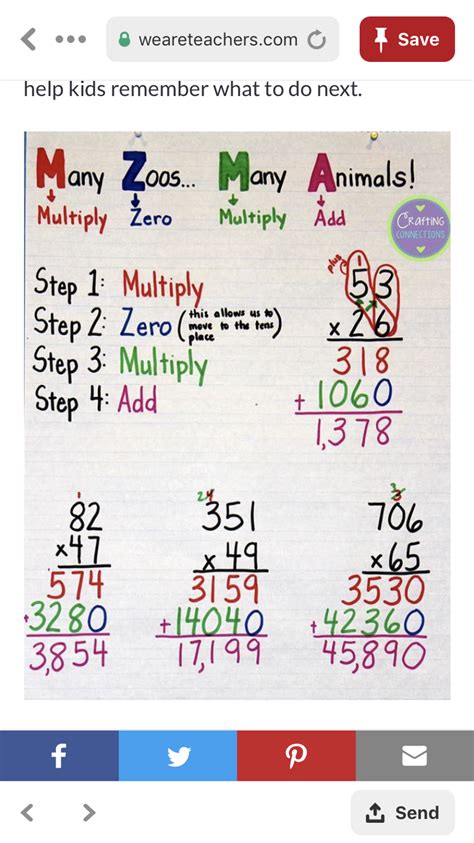 weareteachers.com
Save
help kids remember what to do next.
Many Zoos... Many Animals!
Multiply Zero Multiply Add
CRafTiNG
CONNECTIONS
Step 1: Multiply
Step 2: Zero (this allows us to move to the tens place)
Step 3: Multiply
Step 4: Add
plus 1
53
x 26
318
+ 1060
1,378
1
82
x47
574
+3280
3,854
24
351
x 49
3159
+14040
17,199
3
706
x65
3530
+42360
45,890
Send